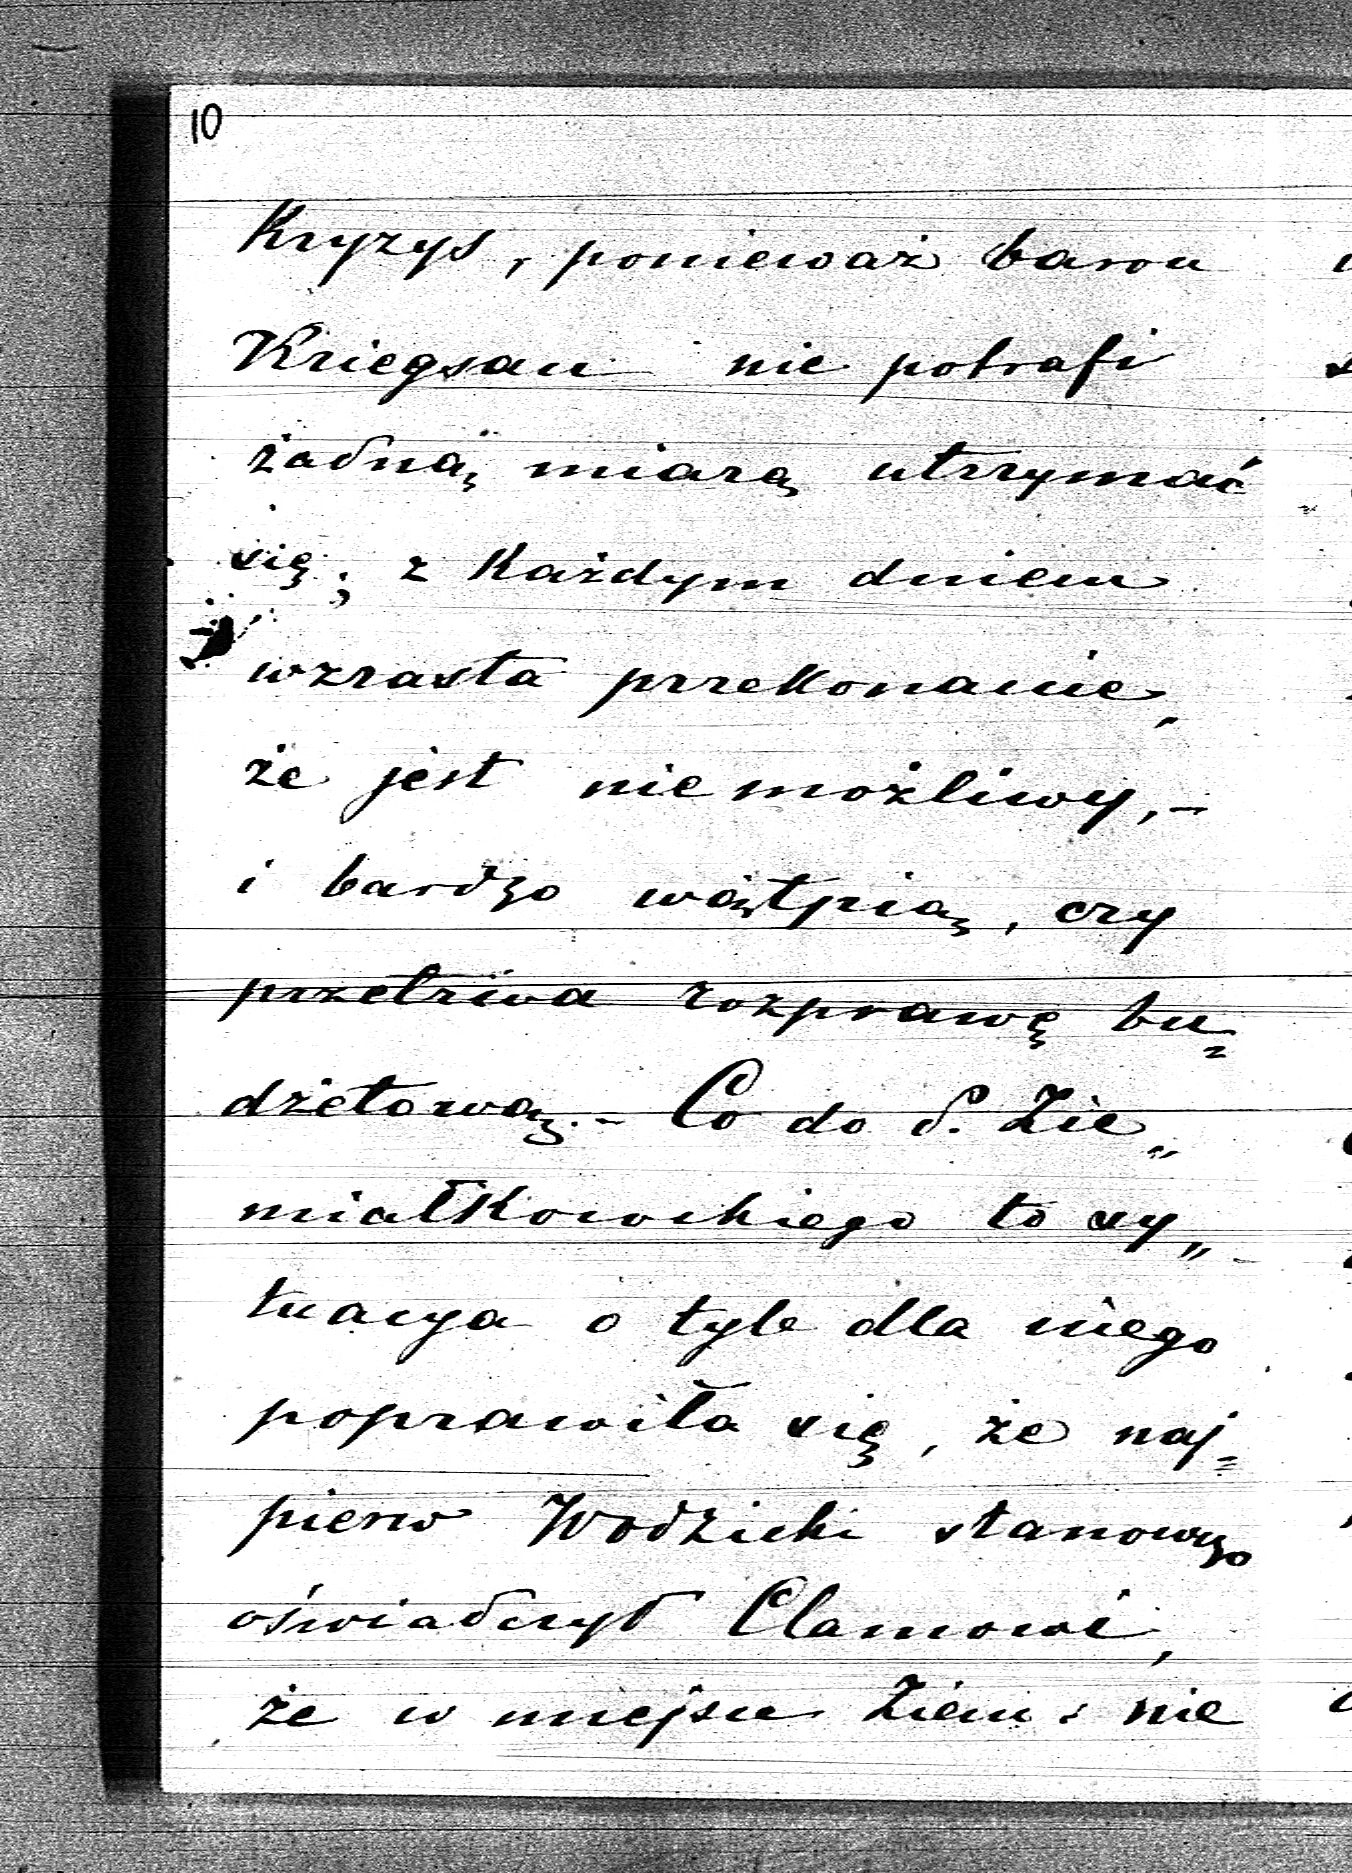 10
Kryzys, ponieważ baron
Kriegsau nie potrafi
żadną miarą utrzymać
się; z każdym dniem
wzrasta przekonanie,
że jest niemożliwy, –
i bardzo wątpią, czy
przetrwa rozprawę bu-
dżetową. – Co do P. Zie„
miałkowskiego to sy„
tuacya o tyle dla niego
poprawiła się, że naj=
pierw Wodzicki stanowczo
oświadczył Clamowi,
że w miejsce Ziem: nie